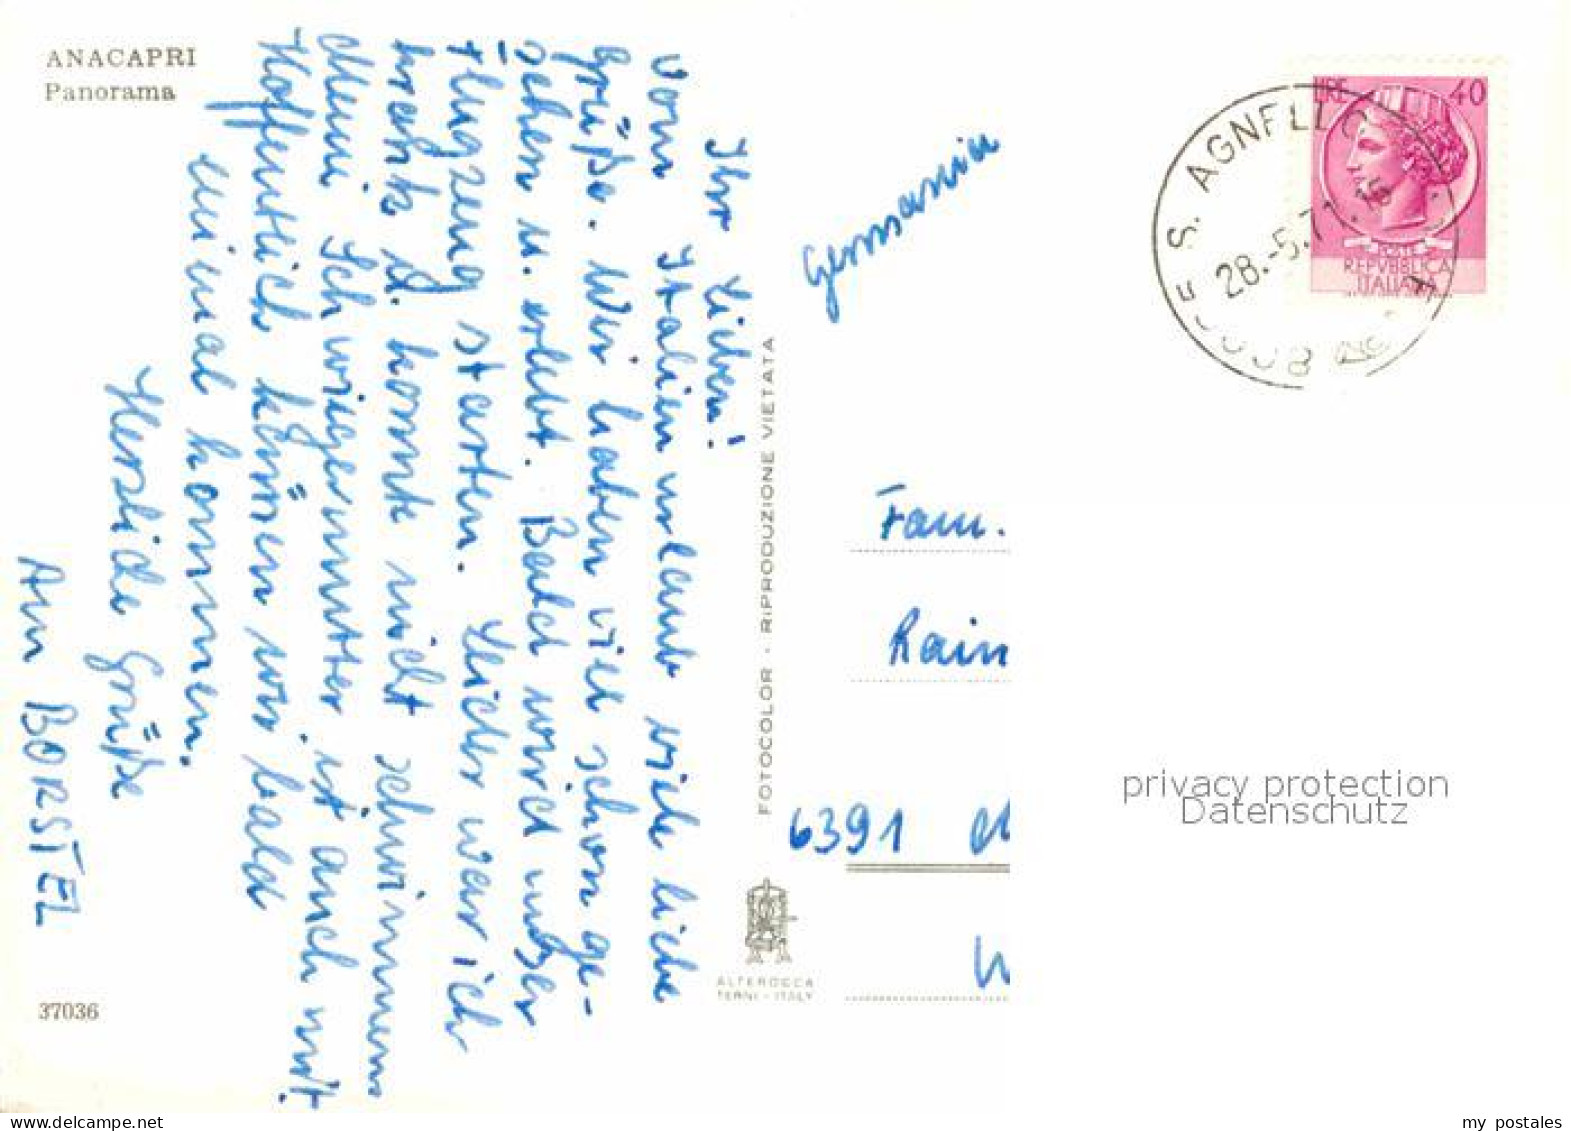 ANACAPRI
Panorama
Ihr Lieben!
vom Italienurlaub viele liebe
Grüße. Wir haben viel schon ge-
sehen u. erlebt. Bald wird unser
Flugzeug starten. Leider war ich
krank u. konnte nicht schwimmen
Meine Schwiegermutter ist auch mit.
Hoffentlich können wir bald
einmal kommen.
Herzliche Grüße
Ann BORSTEL
37036
FOTOCOLOR - RIPRODUZIONE VIETATA
ALTEROCCA
TERNI - ITALY
Germania
Fam.
Rain
6391
LIRE 40
POSTE
REPVBBLICA
ITALIANA
S. AGNELLO
28.-5.71.16
privacy protection
Datenschutz
my postales